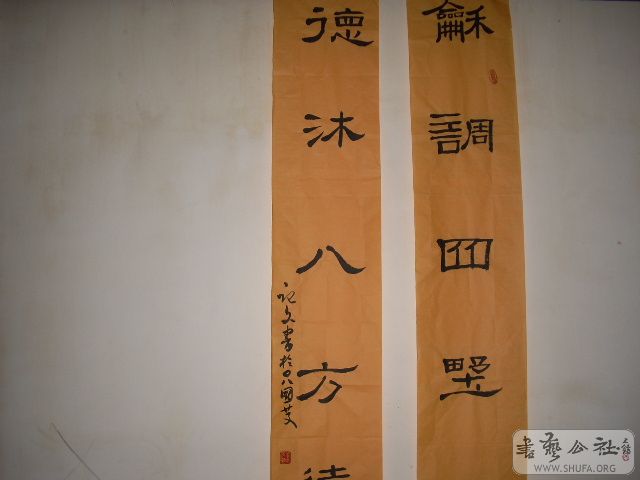 龢調四墅
德沐八方
文書於〇八國慶
書藝公社
WWW.SHUFA.ORG